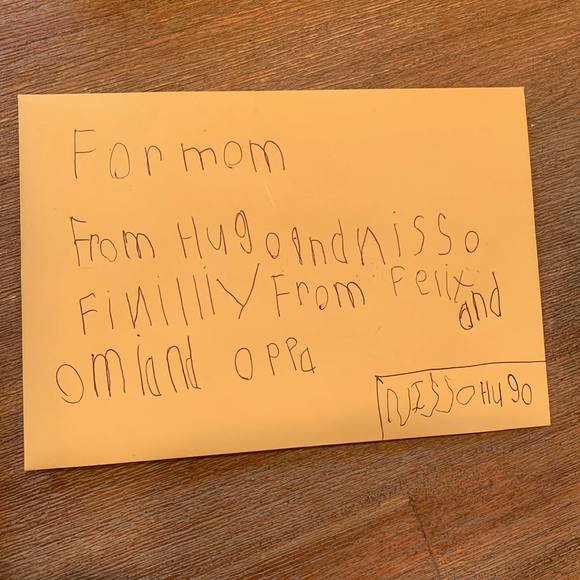 For mom
From Hugo and nisso
Finilliy From Felix and
omi and oppa
NISSO Hugo